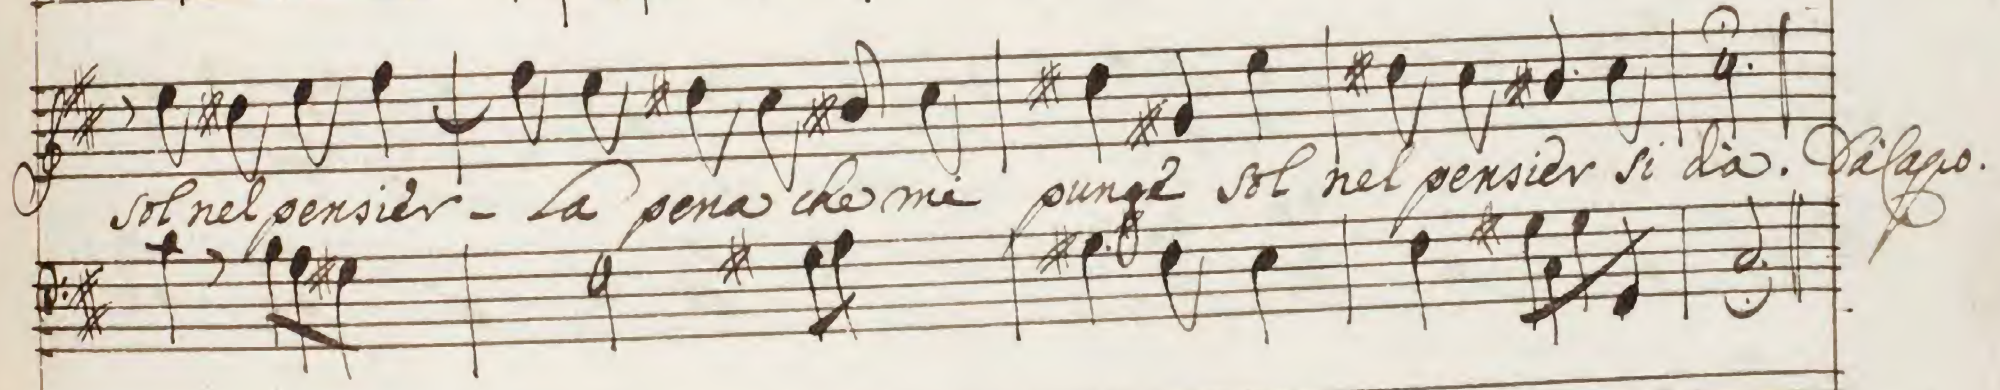 sol nel pensièr - La pena che mi pungè sol nel pensièr si dà. Dà Capo.